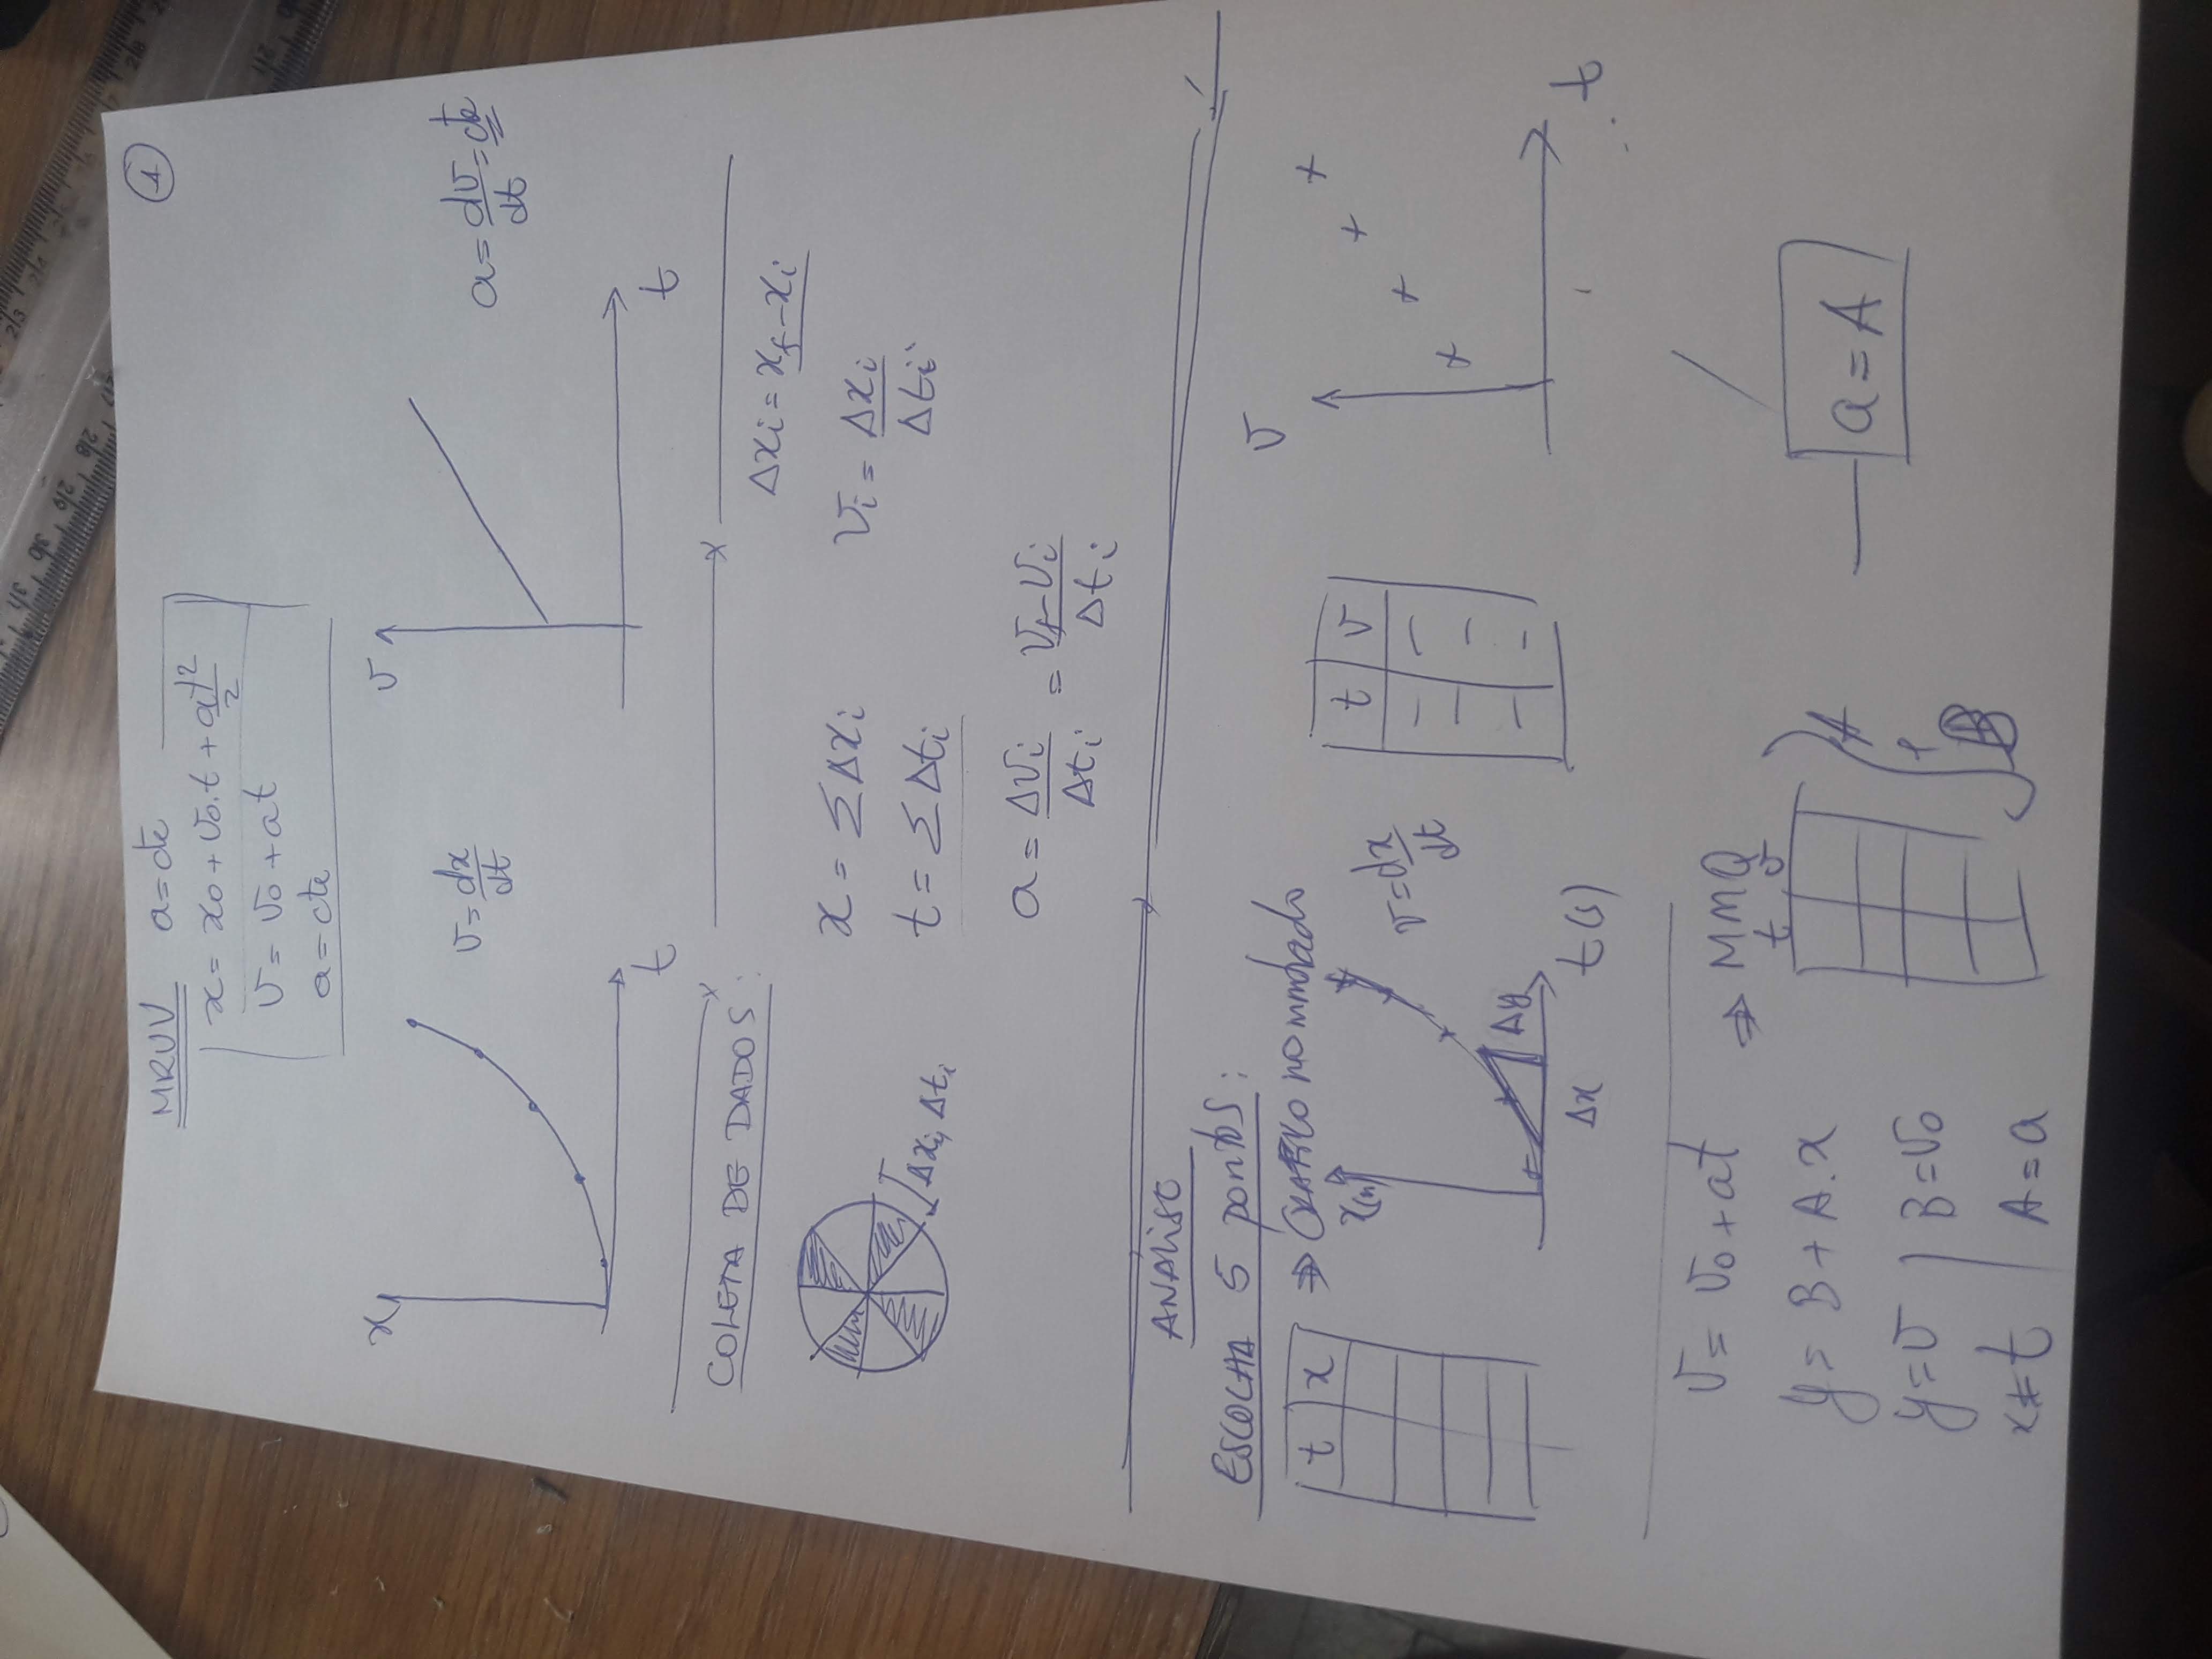 1
MRUV a=cte
x = x0 + v0.t + at²/2
v = v0 + at
a = cte
x
t
v = dx/dt
v
t
a = dv/dt = cte
COLETA DE DADOS:
Δxi = xf - xi
Δxi, Δti
x = ΣΔxi
t = ΣΔti
vi = Δxi/Δti
a = Δvi/Δti = vf - vi/Δti
ANÁLISE
ESCOLHA 5 pontos:
t x
⇒ GRÁFICO no
x(m)
Δy
Δx
t(s)
v = dx/dt
t v
v
t
v = v0 + at
⇒ MMQ
t v
y = B + A.x
y = v
B = v0
x = t
A = a
A
e
B
a = A